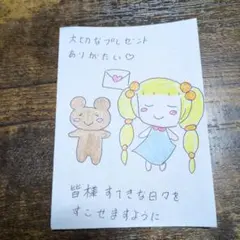 大切なプレゼント
ありがたい♡
皆様 すてきな日々を
すごせますように